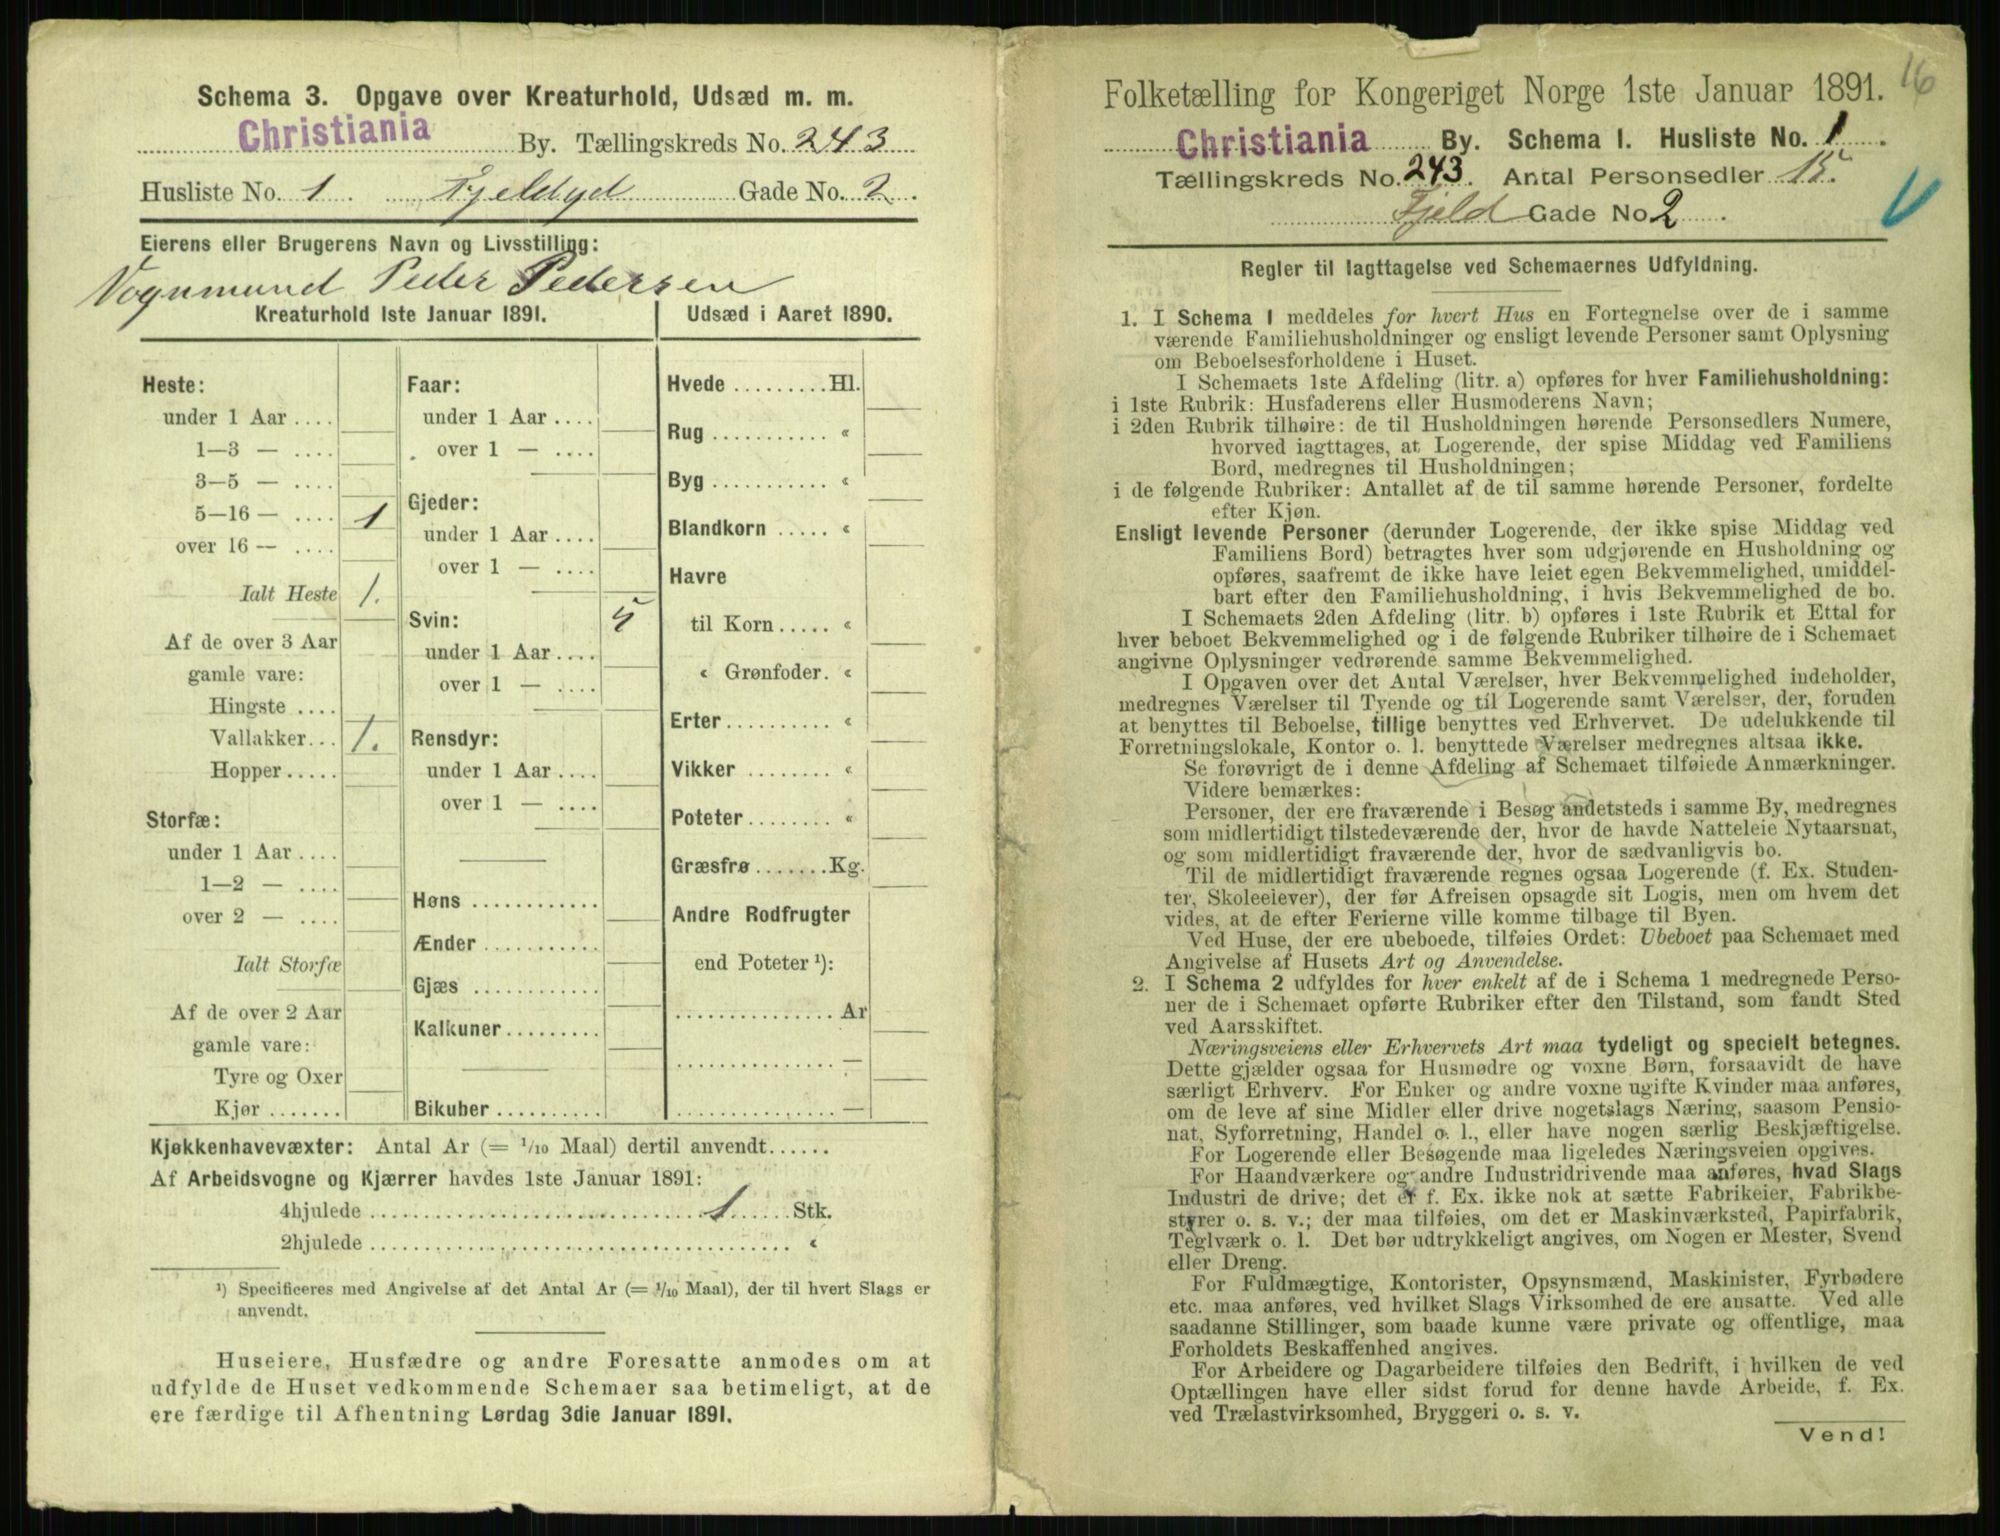 Schema 3. Opgave over Kreaturhold, Udsæd m. m.
Christiania By. Tællingskreds No. 243
Husliste No. 1. Gade No. 2.
Eierens eller Brugerens Navn og Livsstilling:
Vognmand Peder Pedersen
Kreaturhold 1ste Januar 1891.
Heste:
under 1 Aar ....
1—3 — ....
3—5 — ....
5—16 — .... 1
over 16 — ....
Ialt Heste 1.
Af de over 3 Aar
gamle vare:
Hingste ....
Vallakker... 1.
Hopper.....
Storfæ:
under 1 Aar ....
1—2 — ....
over 2 — ....
Ialt Storfæ
Af de over 2 Aar
gamle vare:
Tyre og Oxer
Kjør .......
Faar:
under 1 Aar ....
over 1 — ....
Gjeder:
under 1 Aar ....
over 1 — ....
Svin:
under 1 Aar ....
over 1 — ....
Rensdyr:
under 1 Aar ....
over 1 — ....
Høns ............
Ænder ...........
Gjæs ............
Kalkuner.........
Bikuber ..........
Udsæd i Aaret 1890.
Hvede .........Hl.
Rug ........... «
Byg ........... «
Blandkorn ..... «
Havre
til Korn ..... «
« Grønfoder. «
Erter.......... «
Vikker ........ «
Poteter........ «
Græsfrø .......Kg.
Andre Rodfrugter
end Poteter ¹):
............... Ar
............... —
............... —
Kjøkkenhavevæxter: Antal Ar (= 1/10 Maal) dertil anvendt......
Af Arbeidsvogne og Kjærrer havdes 1ste Januar 1891:
4hjulede .............................. 1 ...... Stk.
2hjulede ...................................... «
¹) Specificeres med Angivelse af det Antal Ar (= 1/10 Maal), der til hvert Slags er
anvendt.
Huseiere, Husfædre og andre Foresatte anmodes om at
udfylde de Huset vedkommende Schemaer saa betimeligt, at de
ere færdige til Afhentning Lørdag 3die Januar 1891.
16
Folketælling for Kongeriget Norge 1ste Januar 1891.
Christiania By. Schema I. Husliste No. 1.
Tællingskreds No. 243. Antal Personsedler 15.
Fjeld Gade No 2.
Regler til Iagttagelse ved Schemaernes Udfyldning.
1. I Schema I meddeles for hvert Hus en Fortegnelse over de i samme
værende Familiehusholdninger og ensligt levende Personer samt Oplysning
om Beboelsesforholdene i Huset.
I Schemaets 1ste Afdeling (litr. a) opføres for hver Familiehusholdning:
i 1ste Rubrik: Husfaderens eller Husmoderens Navn;
i 2den Rubrik tilhøire: de til Husholdningen hørende Personsedlers Numere,
hvorved iagttages, at Logerende, der spise Middag ved Familiens
Bord, medregnes til Husholdningen;
i de følgende Rubriker: Antallet af de til samme hørende Personer, fordelte
efter Kjøn.
Ensligt levende Personer (derunder Logerende, der ikke spise Middag ved
Familiens Bord) betragtes hver som udgjørende en Husholdning og
opføres, saafremt de ikke have leiet egen Bekvemmelighed, umiddel-
bart efter den Familiehusholdning, i hvis Bekvemmelighed de bo.
I Schemaets 2den Afdeling (litr. b) opføres i 1ste Rubrik et Ettal for
hver beboet Bekvemmelighed og i de følgende Rubriker tilhøire de i Schemaet
angivne Oplysninger vedrørende samme Bekvemmelighed.
I Opgaven over det Antal Værelser, hver Bekvemmelighed indeholder,
medregnes Værelser til Tyende og til Logerende samt Værelser, der, foruden
at benyttes til Beboelse, tillige benyttes ved Erhvervet. De udelukkende til
Forretningslokale, Kontor o. l. benyttede Værelser medregnes altsaa ikke.
Se forøvrigt de i denne Afdeling af Schemaet tilføiede Anmærkninger.
Videre bemærkes:
Personer, der ere fraværende i Besøg andetsteds i samme By, medregnes
som midlertidigt tilstedeværende der, hvor de havde Natteleie Nytaarsnat,
og som midlertidigt fraværende der, hvor de sædvanligvis bo.
Til de midlertidigt fraværende regnes ogsaa Logerende (f. Ex. Studen-
ter, Skoleelever), der før Afreisen opsagde sit Logis, men om hvem det
vides, at de efter Ferierne ville komme tilbage til Byen.
Ved Huse, der ere ubeboede, tilføies Ordet: Ubeboet paa Schemaet med
Angivelse af Husets Art og Anvendelse.
2. I Schema 2 udfyldes for hver enkelt af de i Schema 1 medregnede Perso-
ner de i Schemaet opførte Rubriker efter den Tilstand, som fandt Sted
ved Aarsskiftet.
Næringsveiens eller Erhvervets Art maa tydeligt og specielt betegnes.
Dette gjælder ogsaa for Husmødre og voxne Børn, forsaavidt de have
særligt Erhverv. For Enker og andre voxne ugifte Kvinder maa anføres,
om de leve af sine Midler eller drive nogetslags Næring, saasom Pensio-
nat, Syforretning, Handel o. l., eller have nogen særlig Beskjæftigelse.
For Logerende eller Besøgende maa ligeledes Næringsveien opgives.
For Haandværkere og andre Industridrivende maa anføres, hvad Slags
Industri de drive; det er f. Ex. ikke nok at sætte Fabrikeier, Fabrikbe-
styrer o. s. v.; der maa tilføies, om det er Maskinværksted, Papirfabrik,
Teglværk o. l. Det bør udtrykkeligt angives, om Nogen er Mester, Svend
eller Dreng.
For Fuldmægtige, Kontorister, Opsynsmænd, Maskinister, Fyrbødere
etc. maa anføres, ved hvilket Slags Virksomhed de ere ansatte. Ved alle
saadanne Stillinger, som baade kunne være private og offentlige, maa
Forholdets Beskaffenhed angives.
For Arbeidere og Dagarbeidere tilføies den Bedrift, i hvilken de ved
Optællingen have eller sidst forud for denne havde Arbeide, f. Ex.
ved Trælastvirksomhed, Bryggeri o. s. v.
Vend!